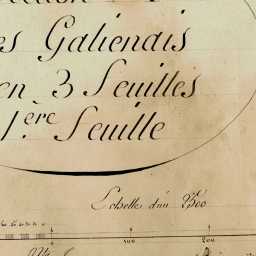 es Galiendis
en 3 Feuilles
1.ère Feuille
Echelle d'un 2500
100
200